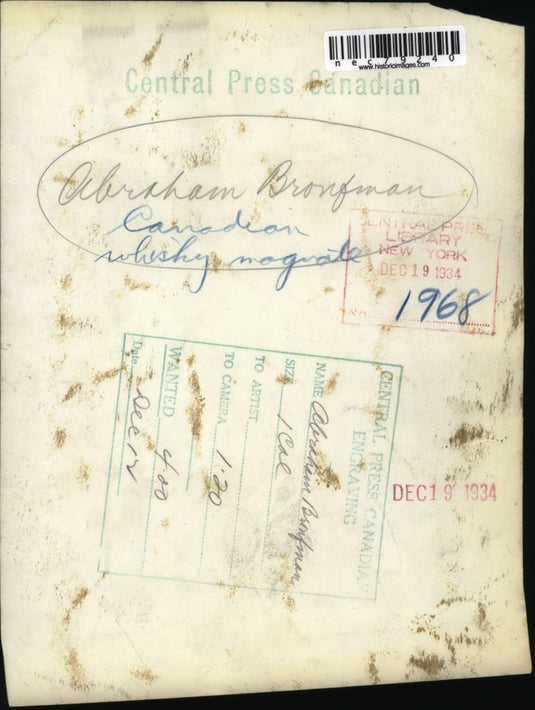 nec79240
www.historicimages.com
Central Press Canadian
Abraham Bronfman
Canadian
whisky magnate
CENTRAL PRESS
LIBRARY
NEW YORK
DEC 19 1934
No. 1968
CENTRAL PRESS CANADIAN
ENGRAVING
NAME Abraham Bronfman
SIZE 1 Col
TO ARTIST
TO CAMERA 1.20
WANTED 4.00
Date Dec 12
DEC 19 1934